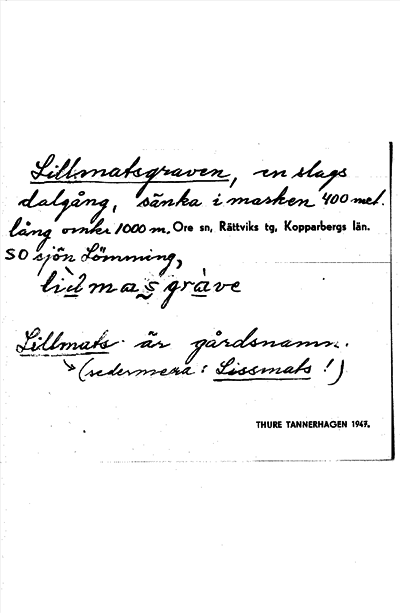 Lillmatsgraven, en slags
dalgång, sänka i marken 400 met.
lång omkr 1000 m. Ore sn, Rättviks tg, Kopparbergs län.
SO sjön Lömming,
Lillmats är gårdsnamn.
(redermera: Lissmats!)
THURE TANNERHAGEN 1947.